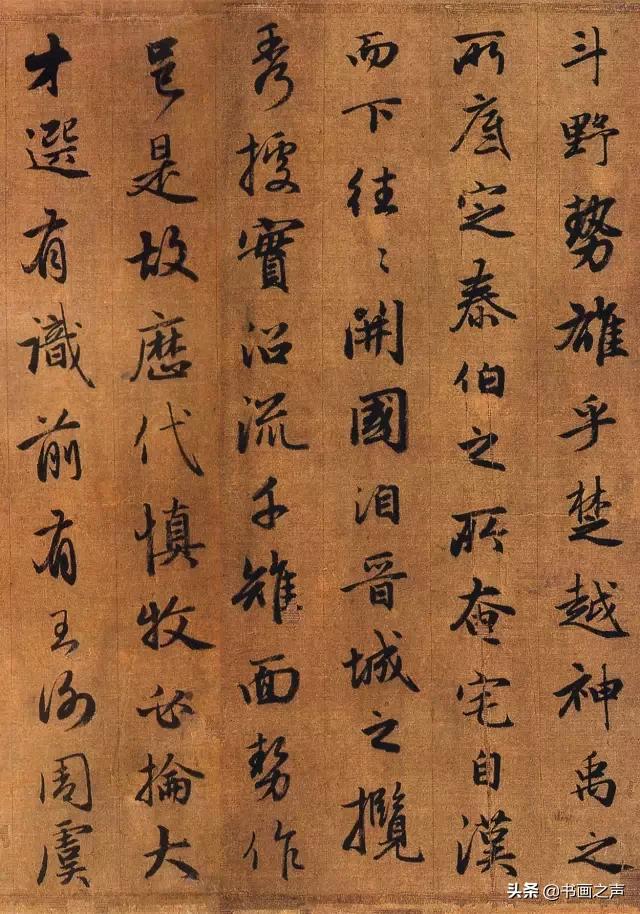 斗野勢雄乎楚越神禹之
所底定泰伯之所奄宅自漢
而下往〻開國洎晉城之攬
秀據實沿流千雉面勢作
邑是故歷代慎牧必掄大
才選有識前有王謝周虞
头条 @书画之声